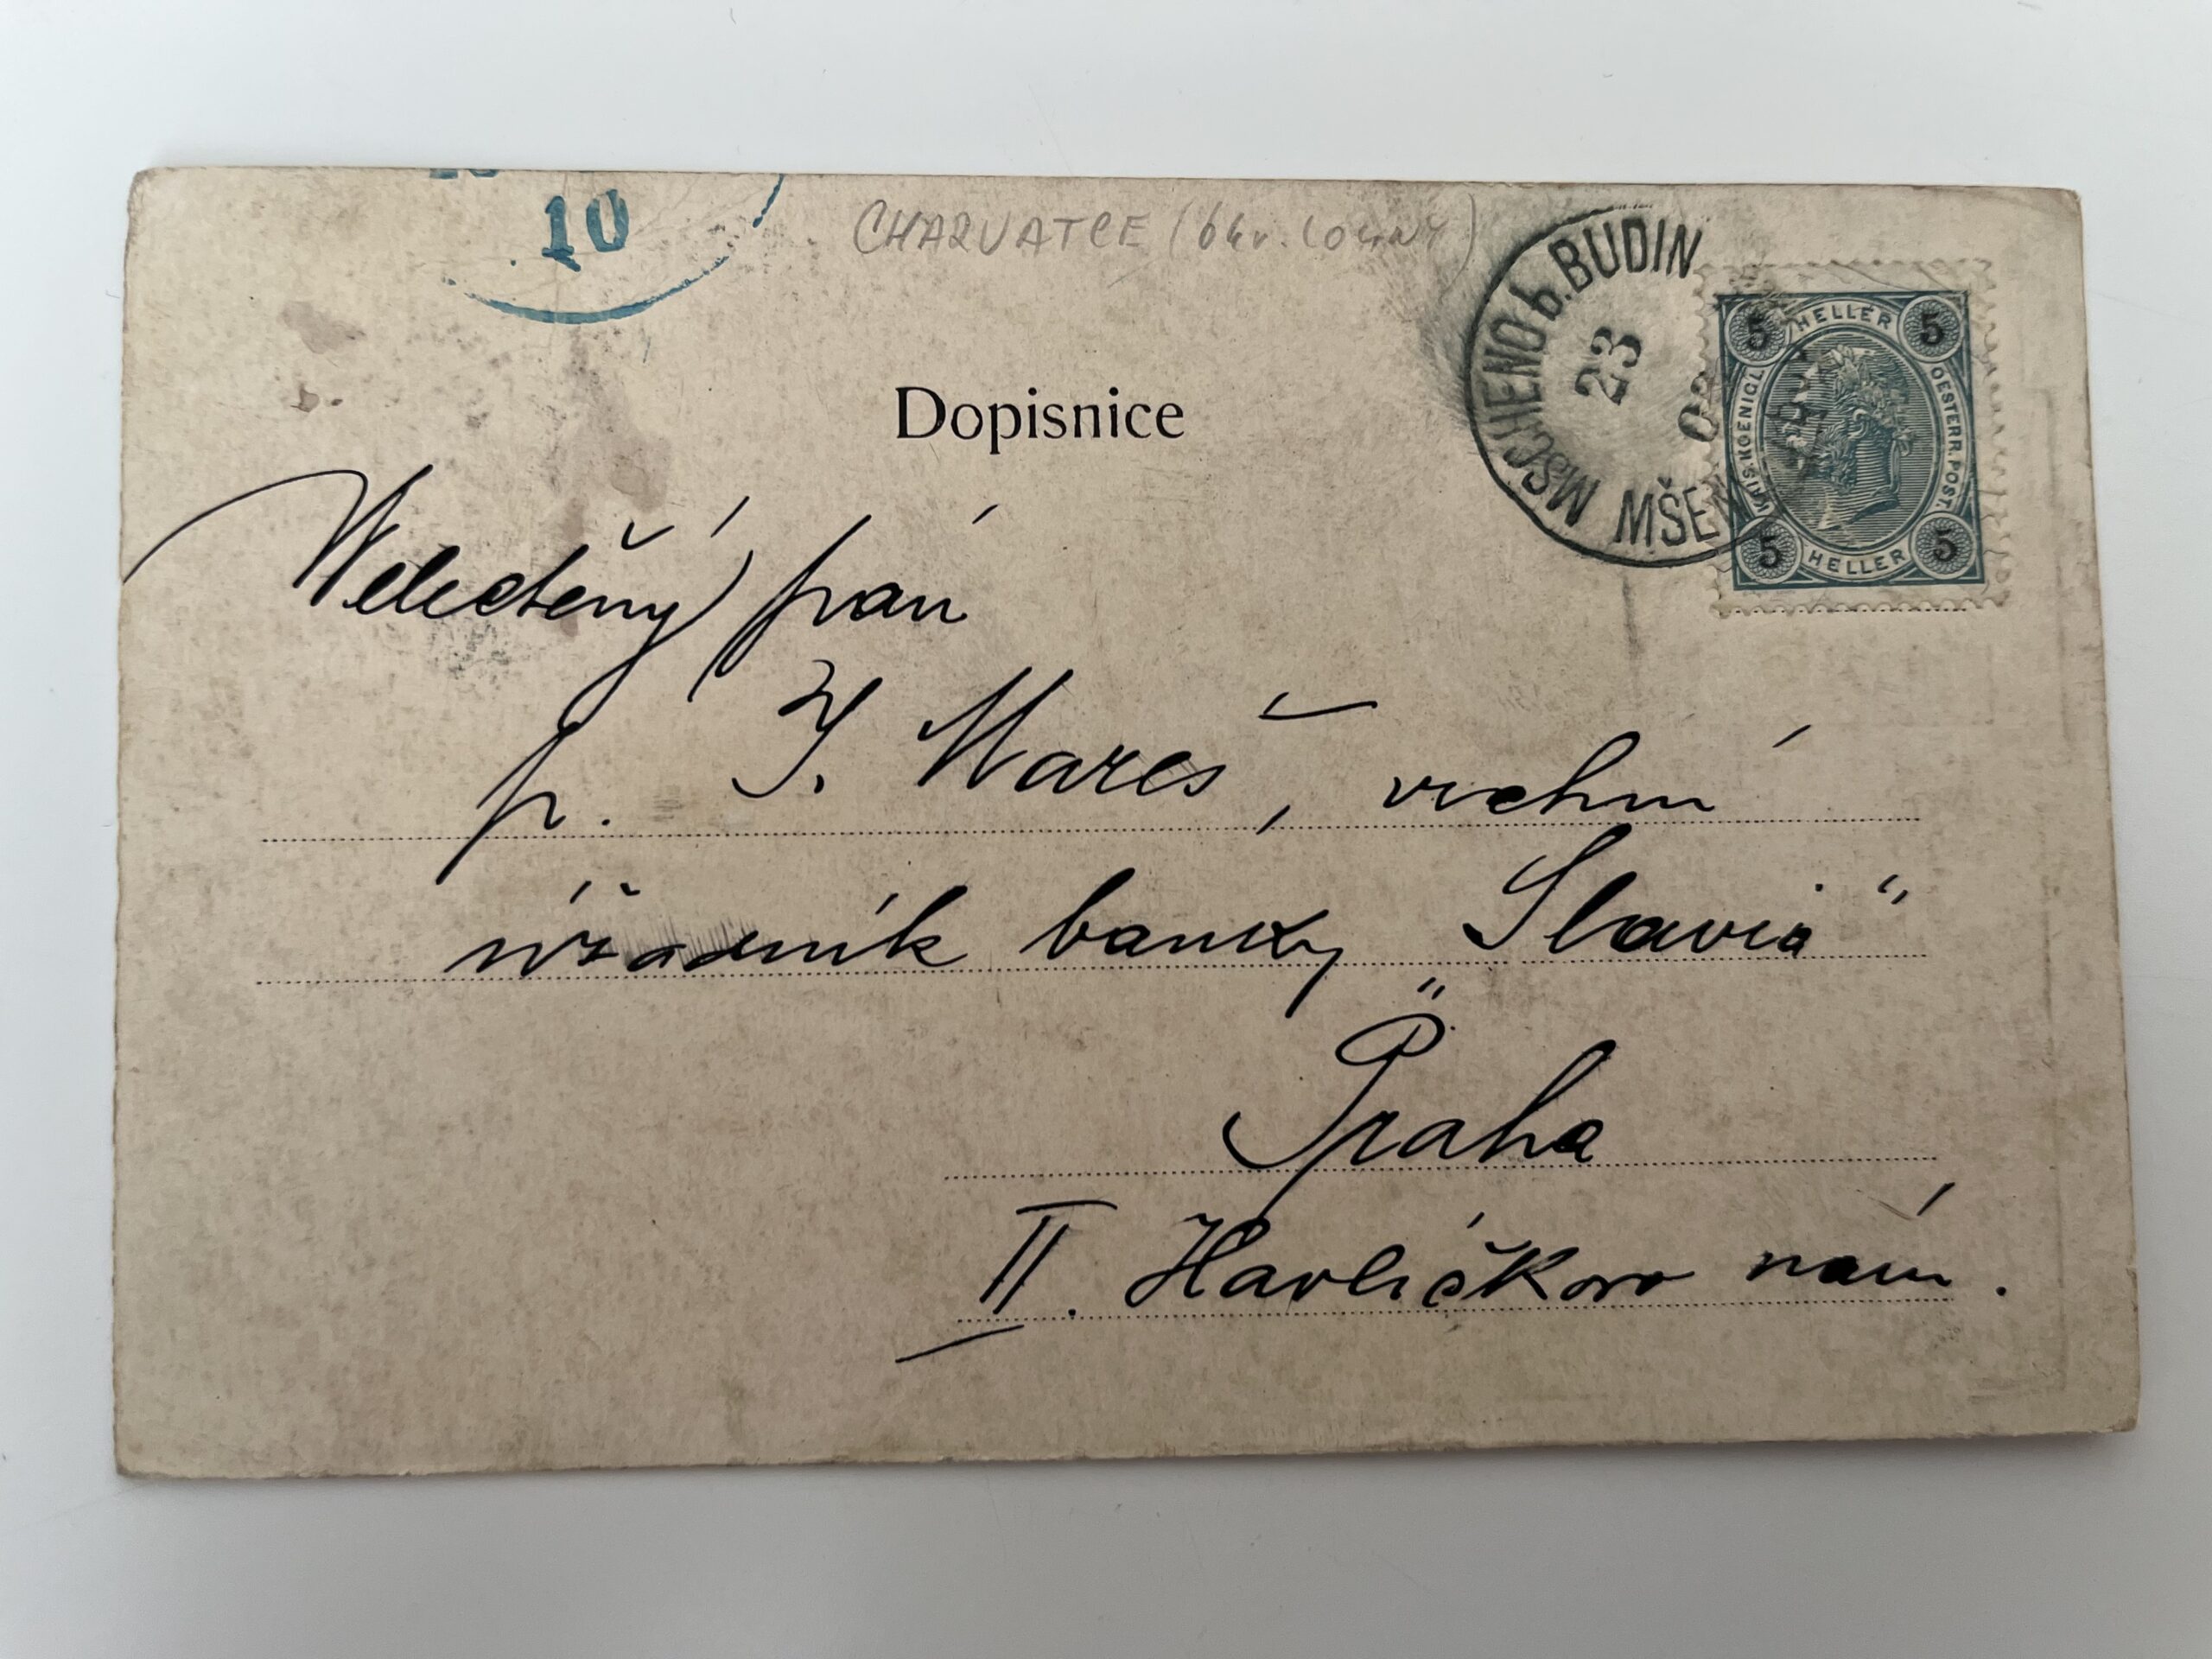 10
CHARVATCE (okr. LOUNY)
MSCHENO b. BUDIN
23
MŠEN
5 HELLER 5
KAIS. KOENIGL. OESTERR. POST.
5 HELLER 5
Dopisnice
Velectěný pán
p. J. Mareš, vrchní
úřadník banky „Slavia“
Praha
II. Havlíčkovo nám.